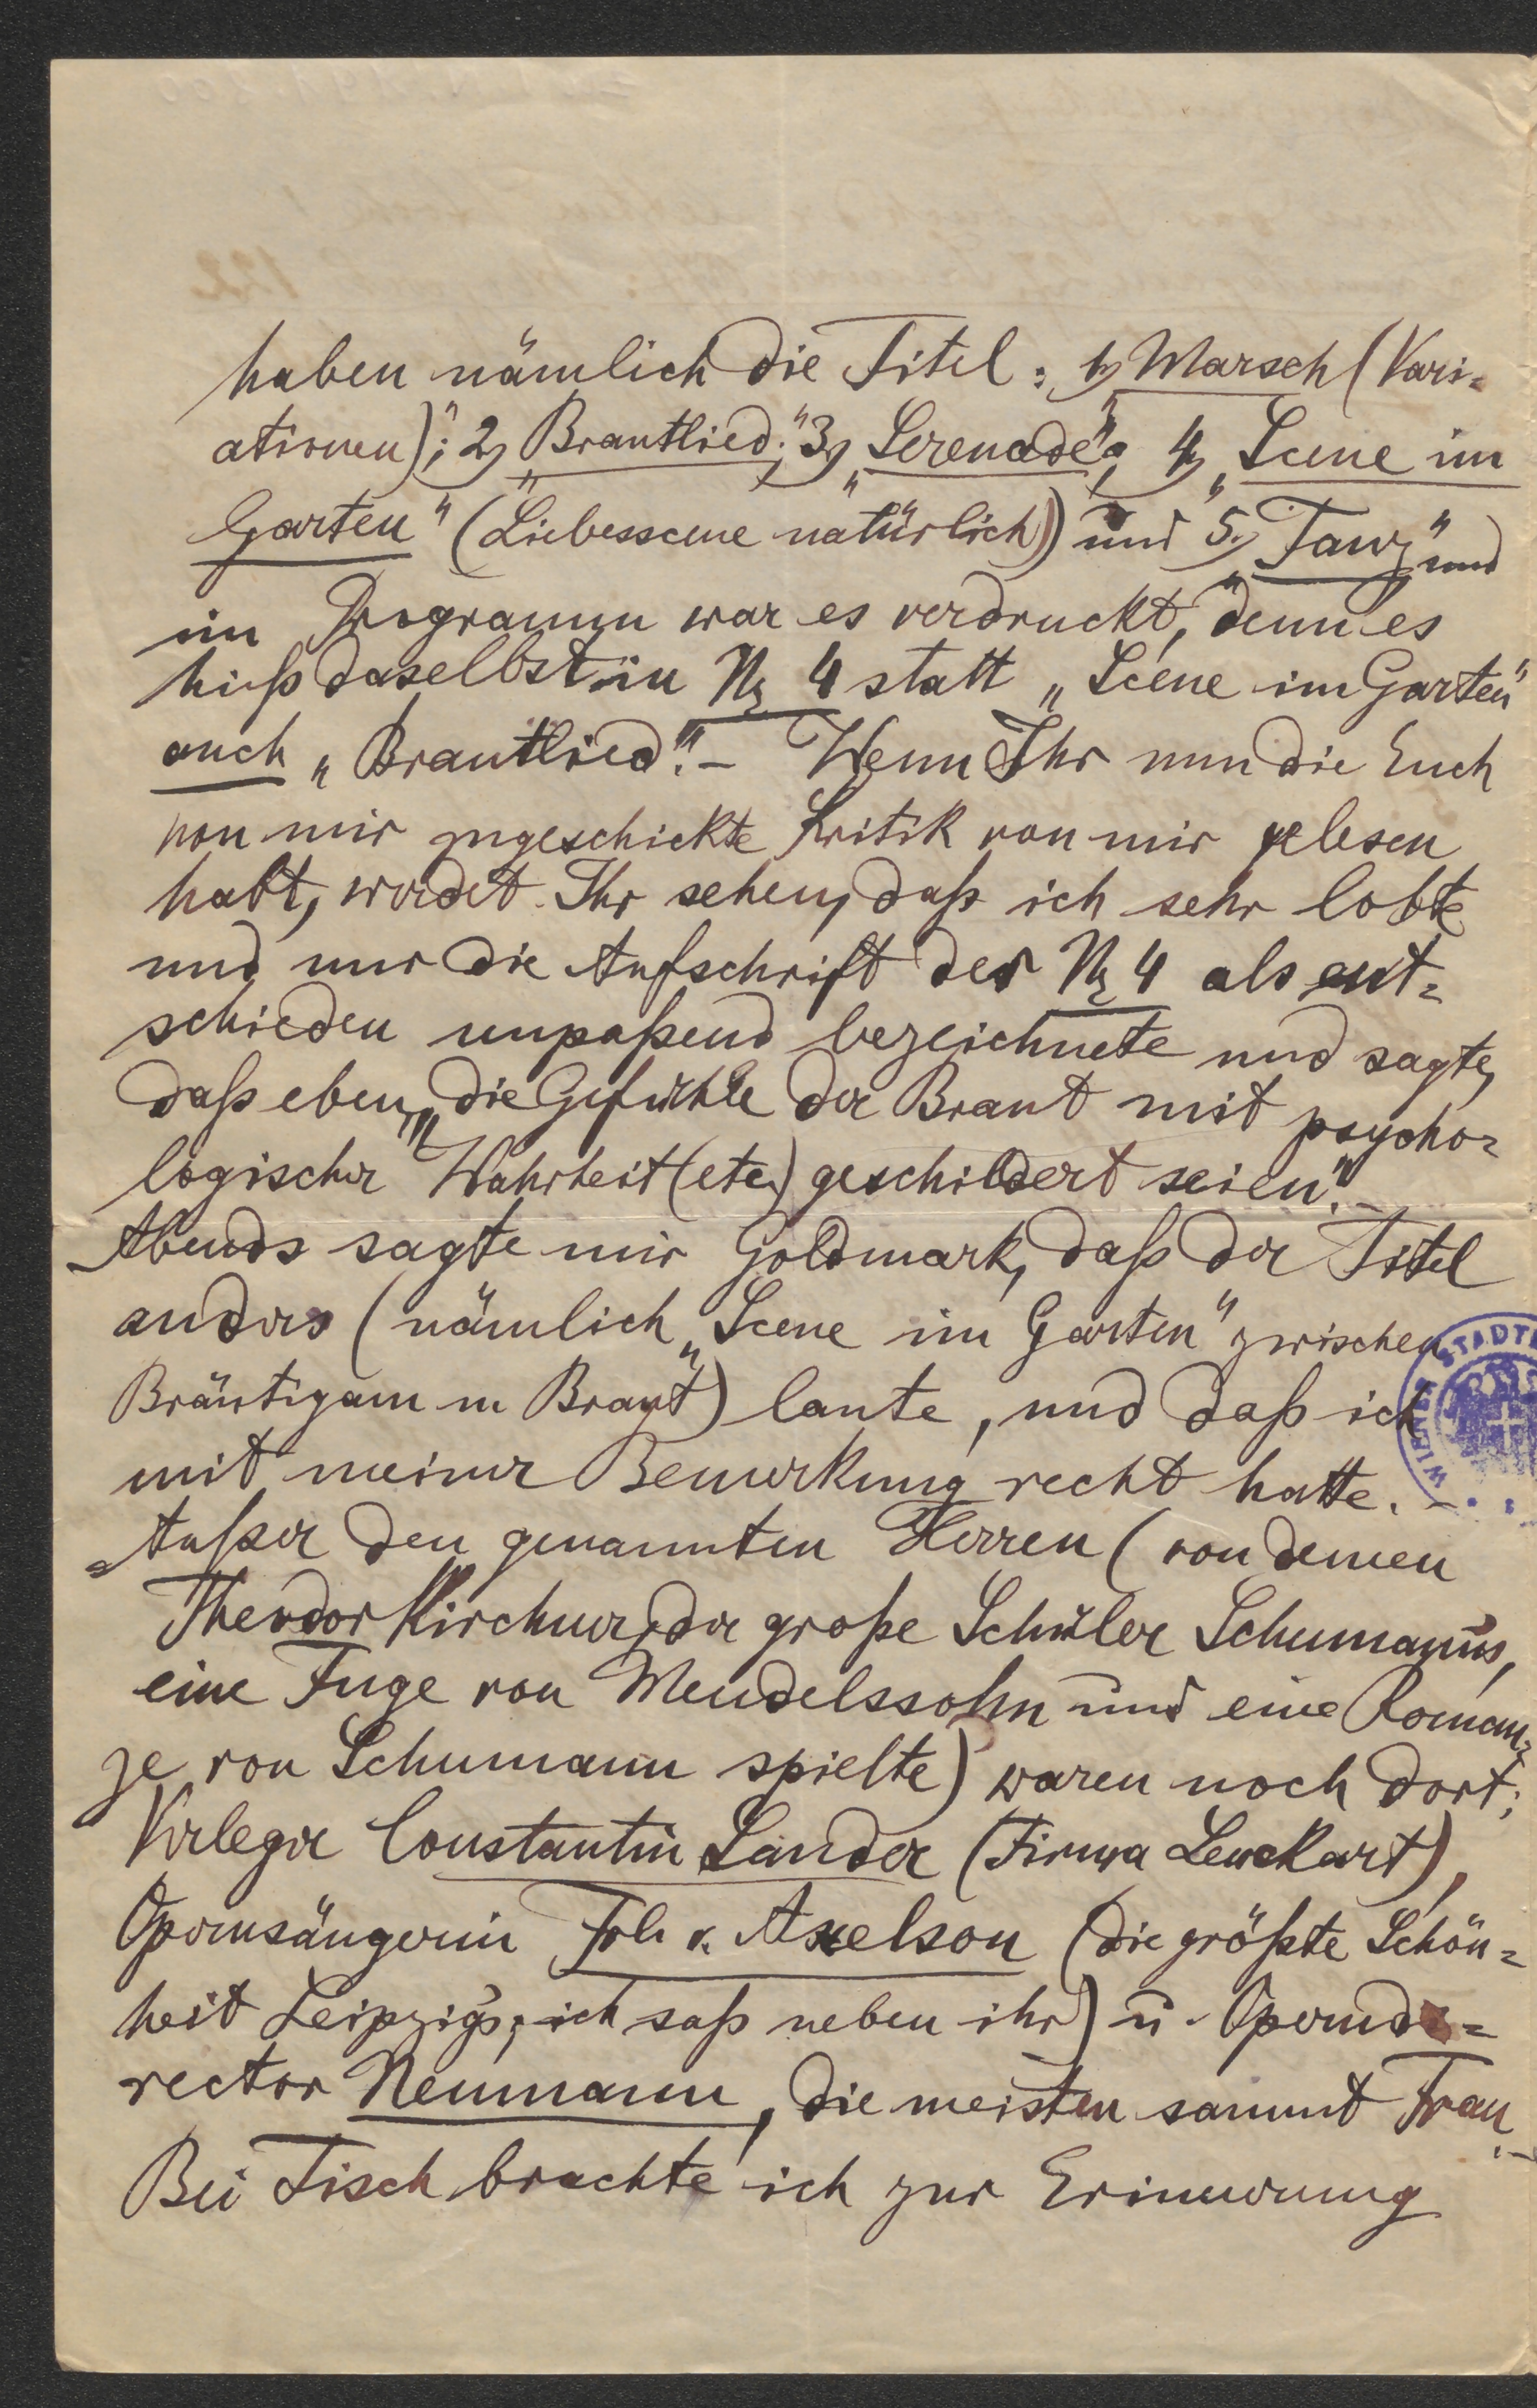 haben nämlich die Titel: 1) Marsch (Vari-
ationen)"; 2) „Brautlied;" 3) „Serenade"; 4) „Scene im
Garten" (Liebesscene natürlich) und 5.) „Tanz" und
im Programm war es verdruckt, denn es
hieß daselbst in No 4 statt „Scene im Garten"
auch „Brautlied". – Wenn Ihr nun die Euch
von mir zugeschickte Kritik von mir gelesen
habt, werdet Ihr sehen, daß ich sehr lobte
und nur die Aufschrift der No 4 als ent-
schieden unpaßend bezeichnete und sagte,
daß eben „die Gefühle der Braut mit psycho-
logischer Wahrheit (etc.) geschildert seien." –
Abends sagte mir Goldmark, daß der Titel
anders (nämlich „Scene im Garten" zwischen
Bräutigam u Braut) laute, und daß ich
mit meiner Bemerkung recht hatte. –
Außer den genannten Herren (von denen
Theodor Kirchner, der große Schüler Schumanns,
eine Fuge von Mendelssohn und eine Roman-
ze von Schumann spielte) waren noch dort:
Verleger Constantin Sander (Firma Leuckart),
Opernsängerin Frl. v. Axelson (die größte Schön-
heit Leipzigs; ich saß neben ihr) u. Operndi-
rector Neumann, die meisten sammt Frau. –
Bei Tisch brachte ich zur Erinnerung
WIENER STADT